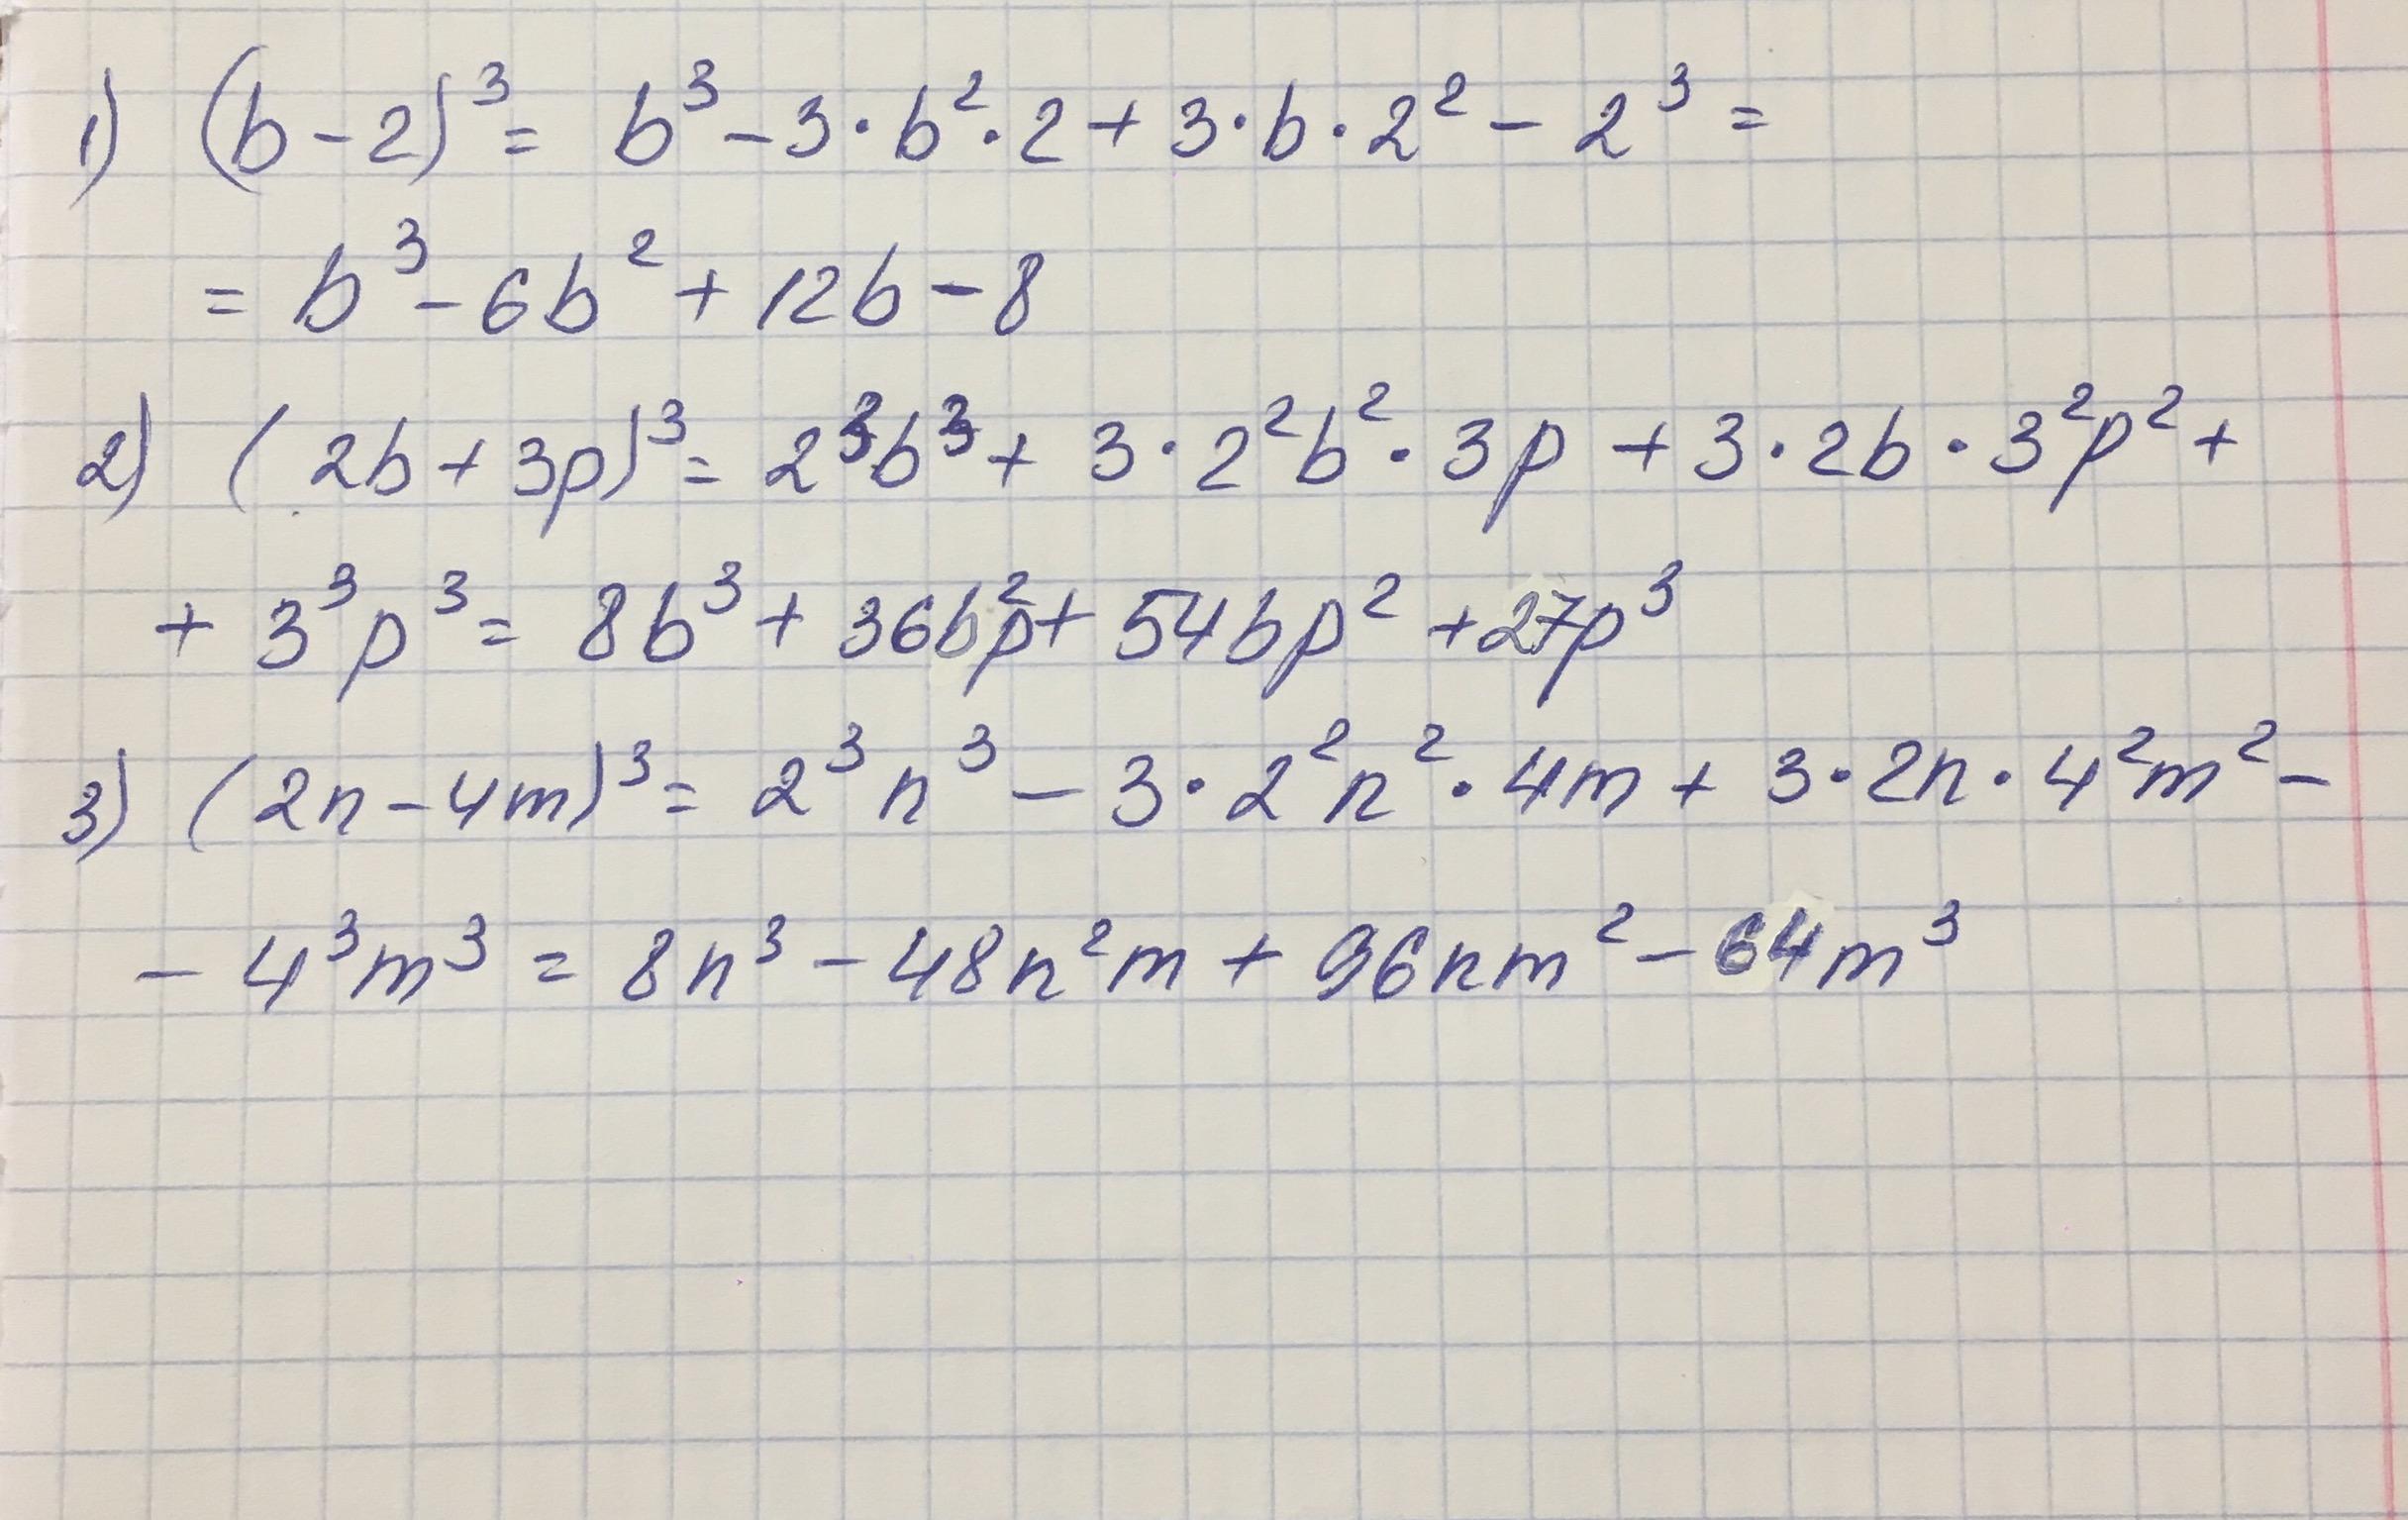 1) (b-2)³ = b³ - 3·b²·2 + 3·b·2² - 2³ =
= b³ - 6b² + 12b - 8
2) (2b + 3p)³ = 2³b³ + 3·2²b²·3p + 3·2b·3²p² +
+ 3³p³ = 8b³ + 36bp² + 54bp² + 27p³
3) (2n - 4m)³ = 2³n³ - 3·2²n²·4m + 3·2n·4²m² -
- 4³m³ = 8n³ - 48n²m + 96nm² - 64m³